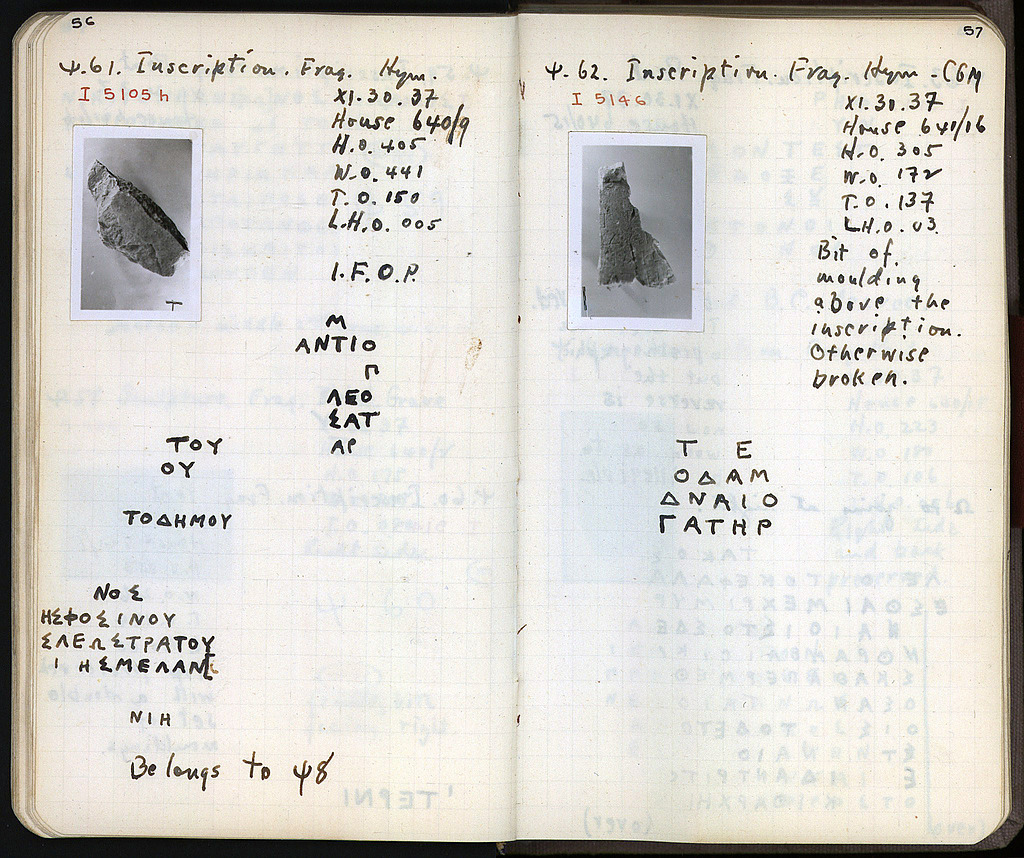 56
Ψ.61. Inscription. Frag. Hym.
I 5105 h
XI.30.37
House 640/9
H.0.405
W.0.441
T.0.150
L.H.0.005
I.F.O.P.
Μ
ΑΝΤΙΟ
Γ
ΛΕΟ
ΣΑΤ
ΑΡ
ΤΟΥ
ΟΥ
ΤΟΔΗΜΟΥ
ΝΟΣ
ΗΣΦΟΣΙΝΟΥ
ΣΛΕΩΣΤΡΑΤΟΥ
Ι ΗΣΜΕΛΑΝ
ΝΙΗ
Belongs to Ψ8
57
Ψ.62. Inscription. Frag. Hym - CGM
I 5146
XI.30.37
House 641/16
H.0.305
W.0.172
T.0.137
L.H.0.03
Bit of
moulding
above the
inscription.
Otherwise
broken.
Τ Ε
ΟΔΑΜ
ΔΝΑΙΟ
ΓΑΤΗΡ